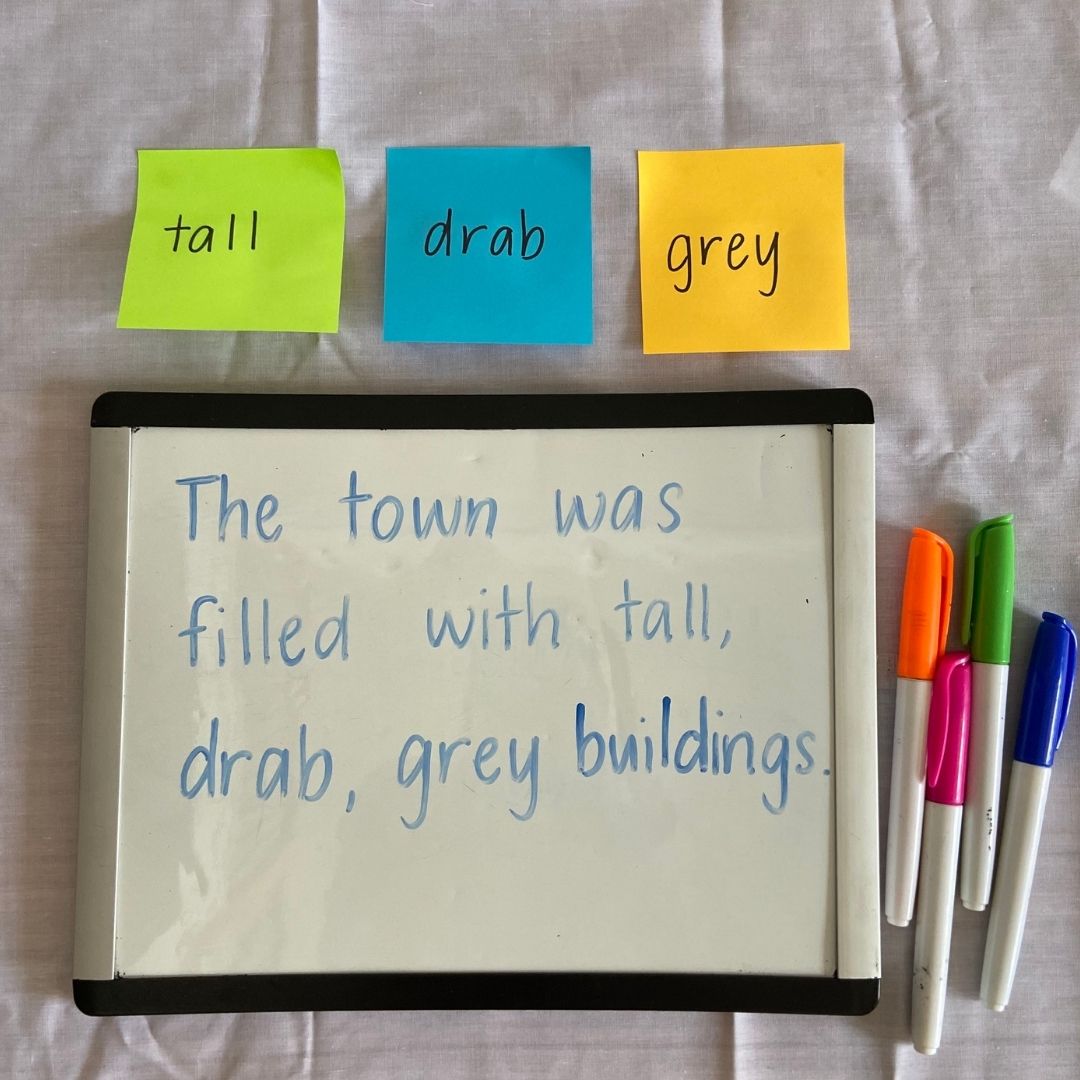 tall drab grey
The town was
filled with tall,
drab, grey buildings.